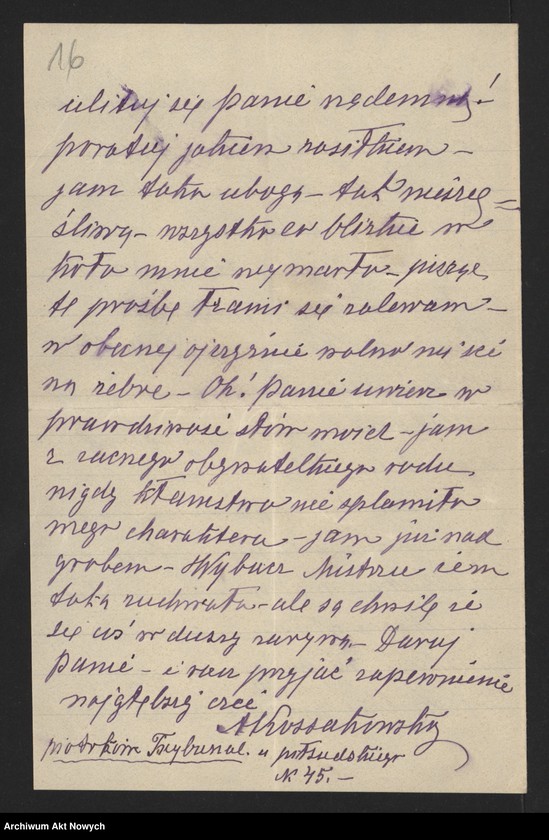 16
ulituj się panie nademną!
poratuj jakiem zasiłkiem –
jam taka uboga – tak nieszczę=
śliwą – wszystko co blizkie w
koło mnie wymarło – pisząc
tę prośbę łzami się zalewam –
w obcej ojczyźnie wolno mi iść
na żebre – Oh! panie uwierz w
prawdziwość słów moich – jam
z zacnego obywatelskiego rodu
nigdy kłamstwo nie splamiło
mego charaktera – jam już nad
grobem – Wybacz Mistrzu iżem
taka zuchwała – ale są chwile że
się coś w duszy zarywa – Daruj
Panie – i racz przyjąć zapewnienie
najgłębszej czci
A Kossakowska
piotrków Trybunal. u piłsudskiego
N 45. –
Archiwum Akt Nowych